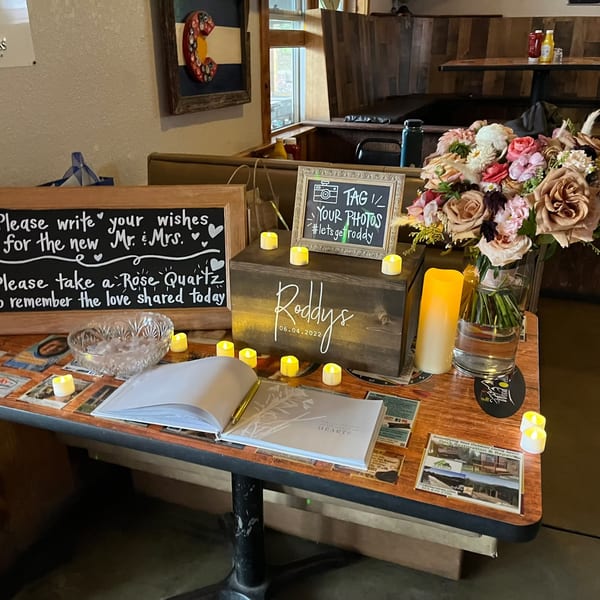 Please write your wishes
for the new Mr. & Mrs.
Please take a Rose Quartz
to remember the love shared today
TAG
YOUR PHOTOS
#letsgetroddy
Roddys
06.04.2022